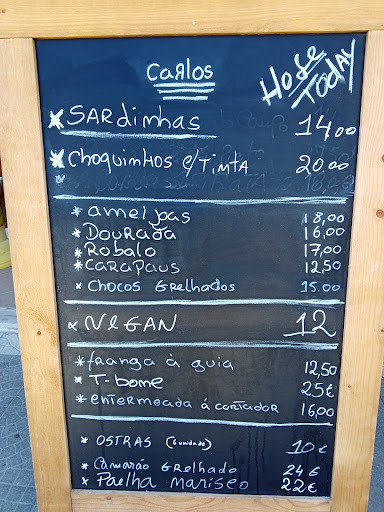 CARLOS
Hoje
TODAY
SARDinhas 14,00
Choquinhos c/TINTA 20.00
ameijoas 18,00
DOURADA 16,00
ROBALO 17,00
CARAPAUS 12,50
CHOCOS GRelhados 15.00
VEGAN 12
franga à guia 12,50
T-bone 25€
entermeada á CORTADOR 16,00
OSTRAS (6 unidade) 10€
Camarão GRelhado 24€
Paelha marisco 22€